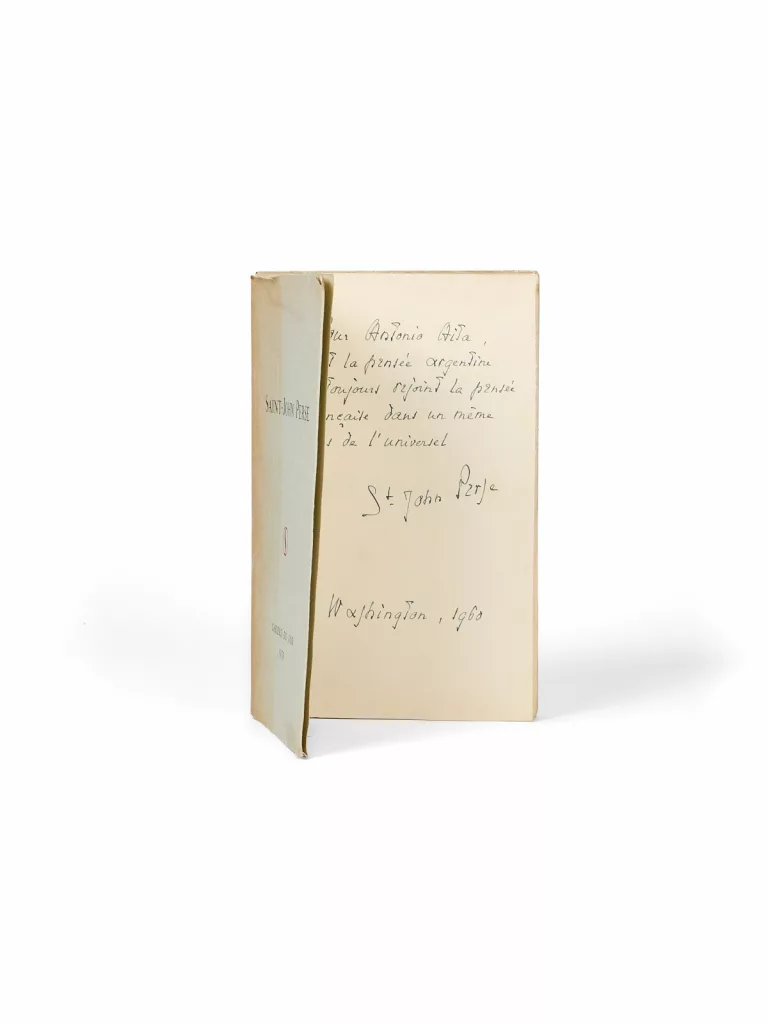 SAINT-JOHN PERSE
Antonio Aita,
la pensée argentine
toujours rejoint la pensée
dans un même
de l'universel
St. John Perse
Washington, 1960